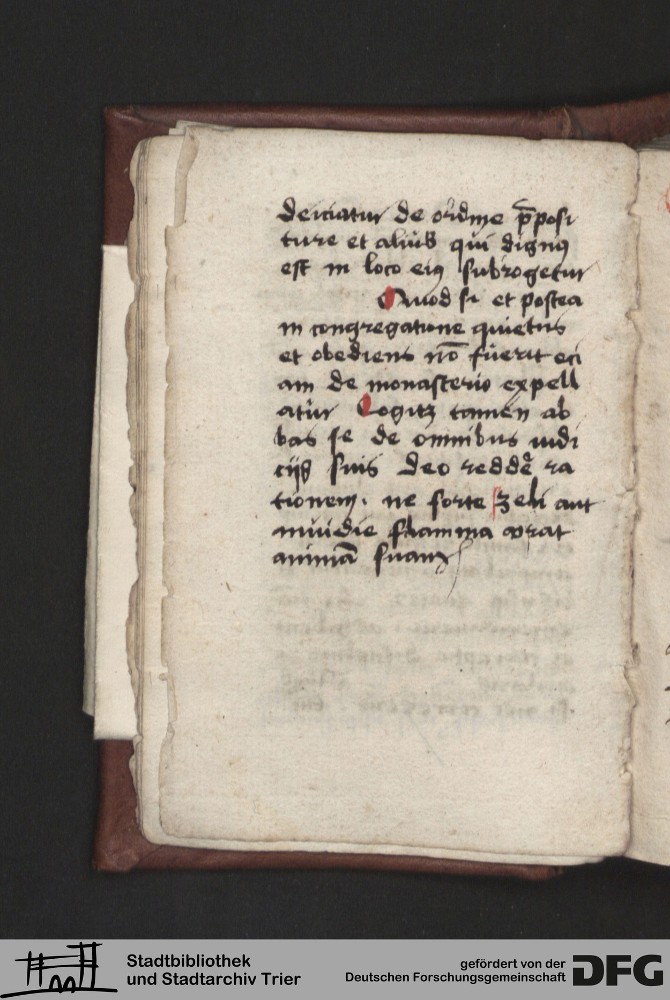 deiciatur de ordine p̄posi
ture et alius qui dignus
est in loco eius subrogetur
Quod si et postea
in congregatione quietus
et obediens nō fuerit eci
am de monasterio expell
atur Cogitꝫ tamen ab
bas se de omnibus iudi
cijs suis deo reddē ra
tionem. ne forte zeli aut
inuidie flamma vrat
animā suam
Stadtbibliothek
und Stadtarchiv Trier
gefördert von der
Deutschen Forschungsgemeinschaft
DFG